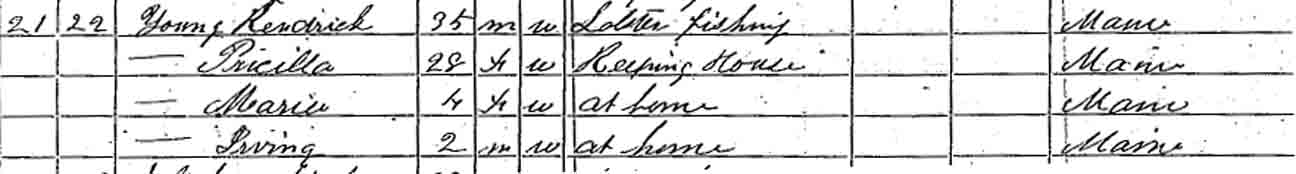 21 22 Young Kendrick 35 m w Lobster fishing Maine
— Pricilla 28 f w Keeping House Maine
— Maria 4 f w at home Maine
— Irving 2 m w at home Maine